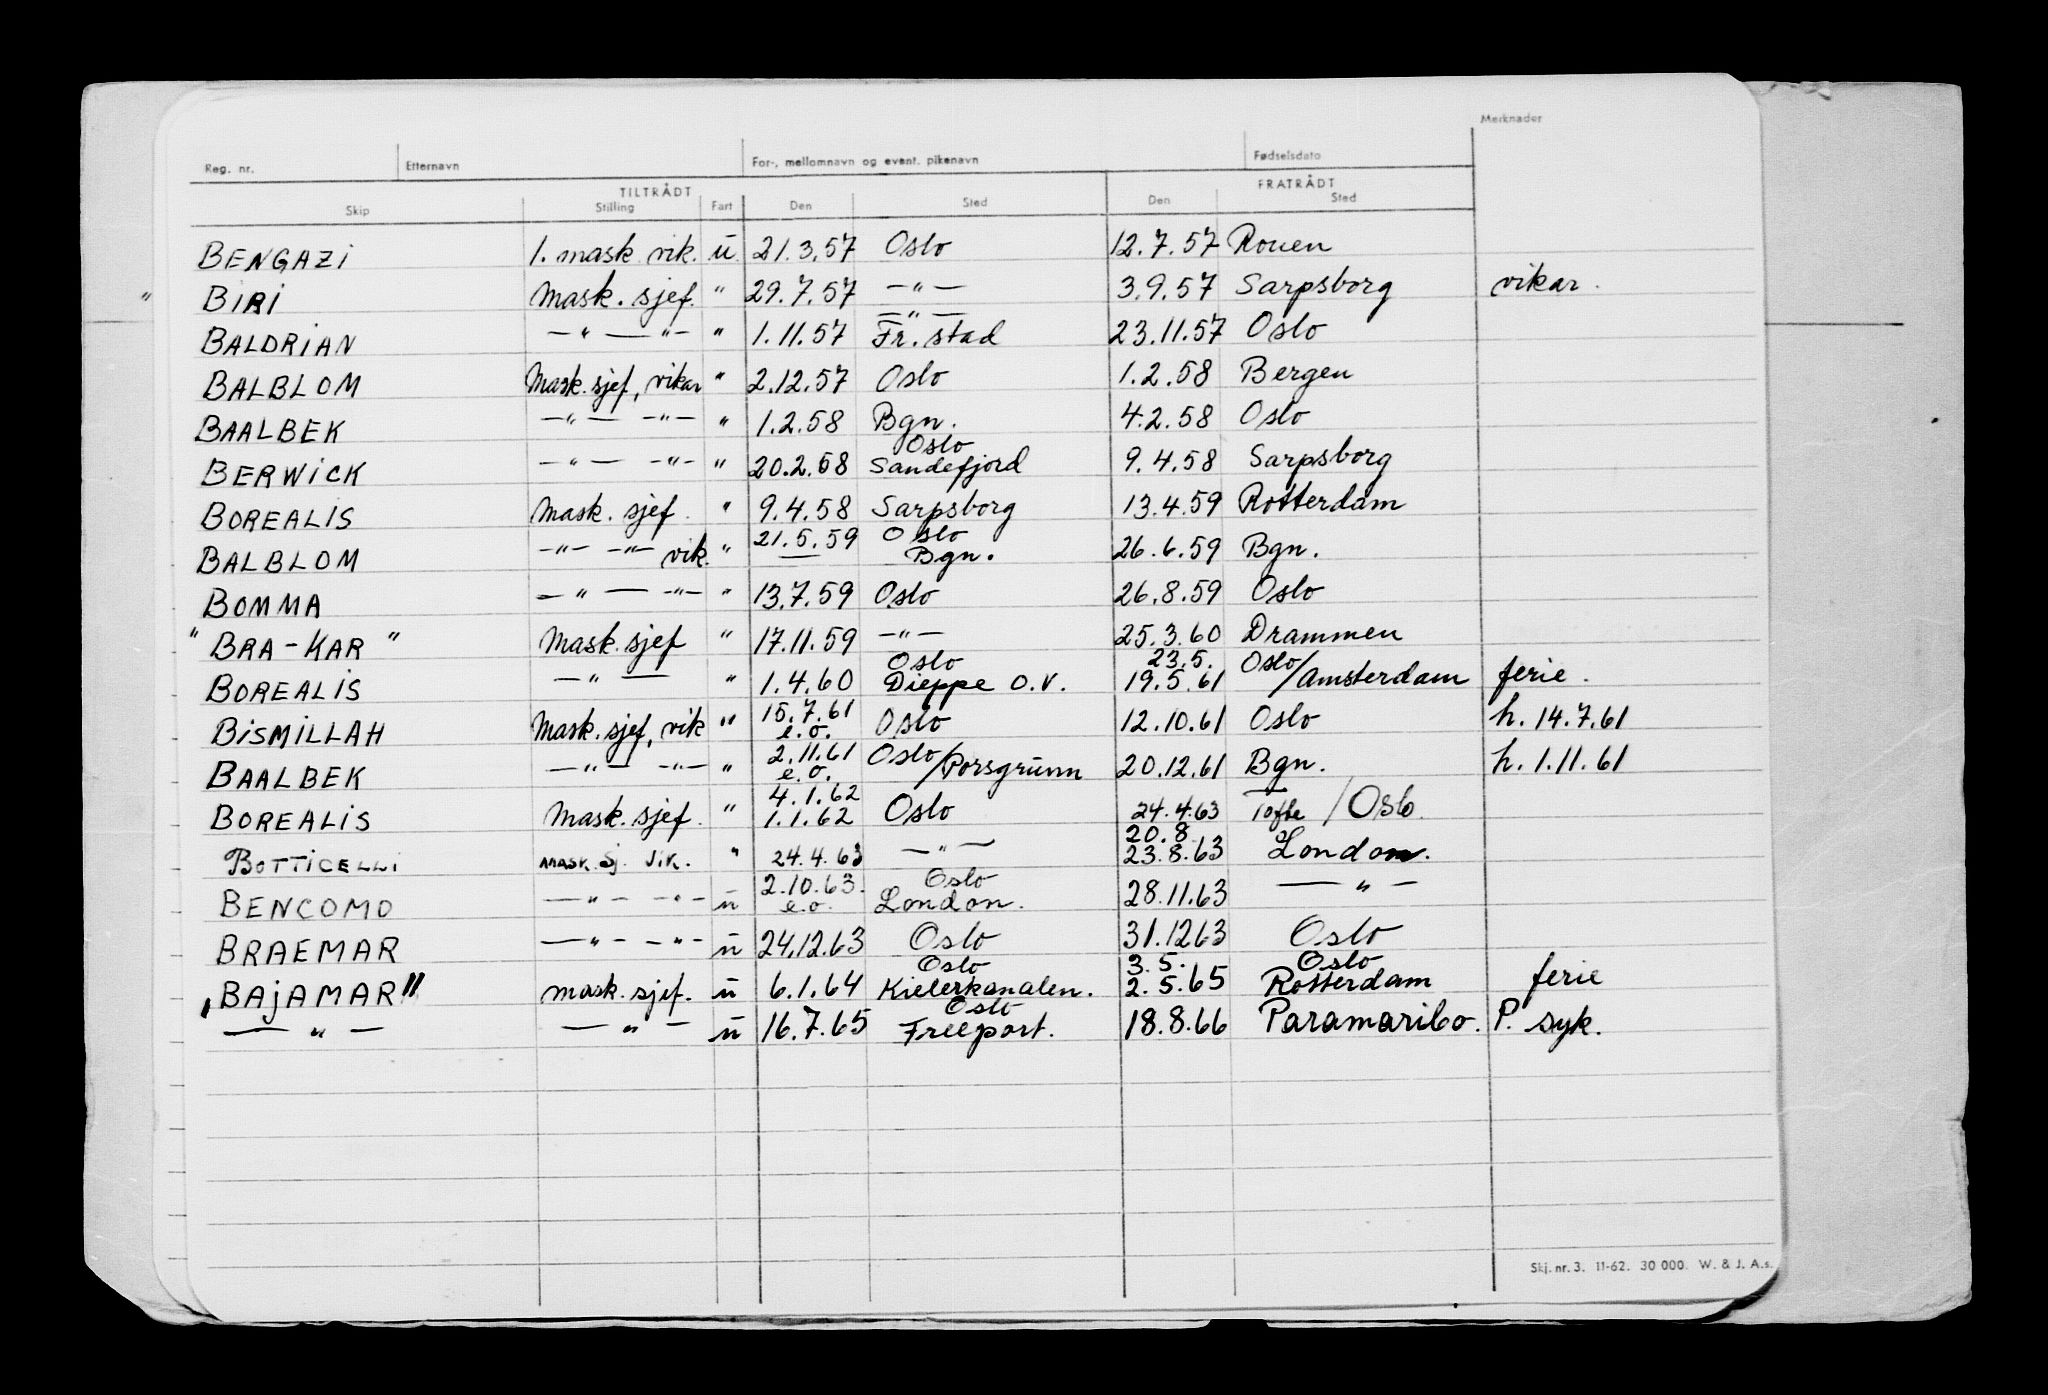 Merknader
Reg. nr. Etternavn For-, mellomnavn og event. pikenavn Fødselsdato
TILTRÅDT FRATRÅDT
Skip Stilling Fart Den Sted Den Sted
BENGAZI 1. mask. vik. ū 21.3.57 Oslo 12.7.57 Rouen
" BIRI Mask. sjef. " 29.7.57 —"— 3.9.57 Sarpsborg vikar.
—"—
BALDRIAN —"— —"— " 1.11.57 Fr.stad 23.11.57 Oslo
BALBLOM Mask. sjef, vikar " 2.12.57 Oslo 1.2.58 Bergen
BAALBEK —"— —"— " 1.2.58 Bgn. 4.2.58 Oslo
Oslo
BERWICK —"— —"— " 20.2.58 Sandefjord 9.4.58 Sarpsborg
BOREALIS Mask. sjef. " 9.4.58 Sarpsborg 13.4.59 Rotterdam
21.5.59 Oslo
BALBLOM —"— —"— vik. " — Bgn. 26.6.59 Bgn.
BOMMA —"— —"— " 13.7.59 Oslo 26.8.59 Oslo
"BRA-KAR" Mask. sjef " 17.11.59 —"— 25.3.60 Drammen
Oslo 23.5.
BOREALIS —"— " 1.4.60 Dieppe o.v. 19.5.61 Oslo/Amsterdam ferie.
15.7.61
BISMILLAH Mask. sjef, vik " e.o. Oslo 12.10.61 Oslo h. 14.7.61
2.11.61
BAALBEK —"— —"— " e.o. Oslo/Porsgrunn 20.12.61 Bgn. h. 1.11.61
4.1.62
BOREALIS Mask. sjef. " 1.1.62 Oslo 24.4.63 Tofte / Oslo.
20.8
BOTTICELLI MASK. Sj. VIK. " 24.4.63 —"— 23.8.63 London.
2.10.63. Oslo
BENCOMO —"— —"— ū e.o. London. 28.11.63 —"—
BRAEMAR —"— —"— ū 24.12.63 Oslo 31.1263 Oslo
Oslo 3.5. Oslo
"BAJAMAR" mask. sjef. ū 6.1.64 Kielerkanalen. 2.5.65 Rotterdam ferie
Oslo
—"— —"— ū 16.7.65 Freeport. 18.8.66 Paramaribo. P. syk.
Skj. nr. 3. 11-62. 30 000. W. & J. A.s.